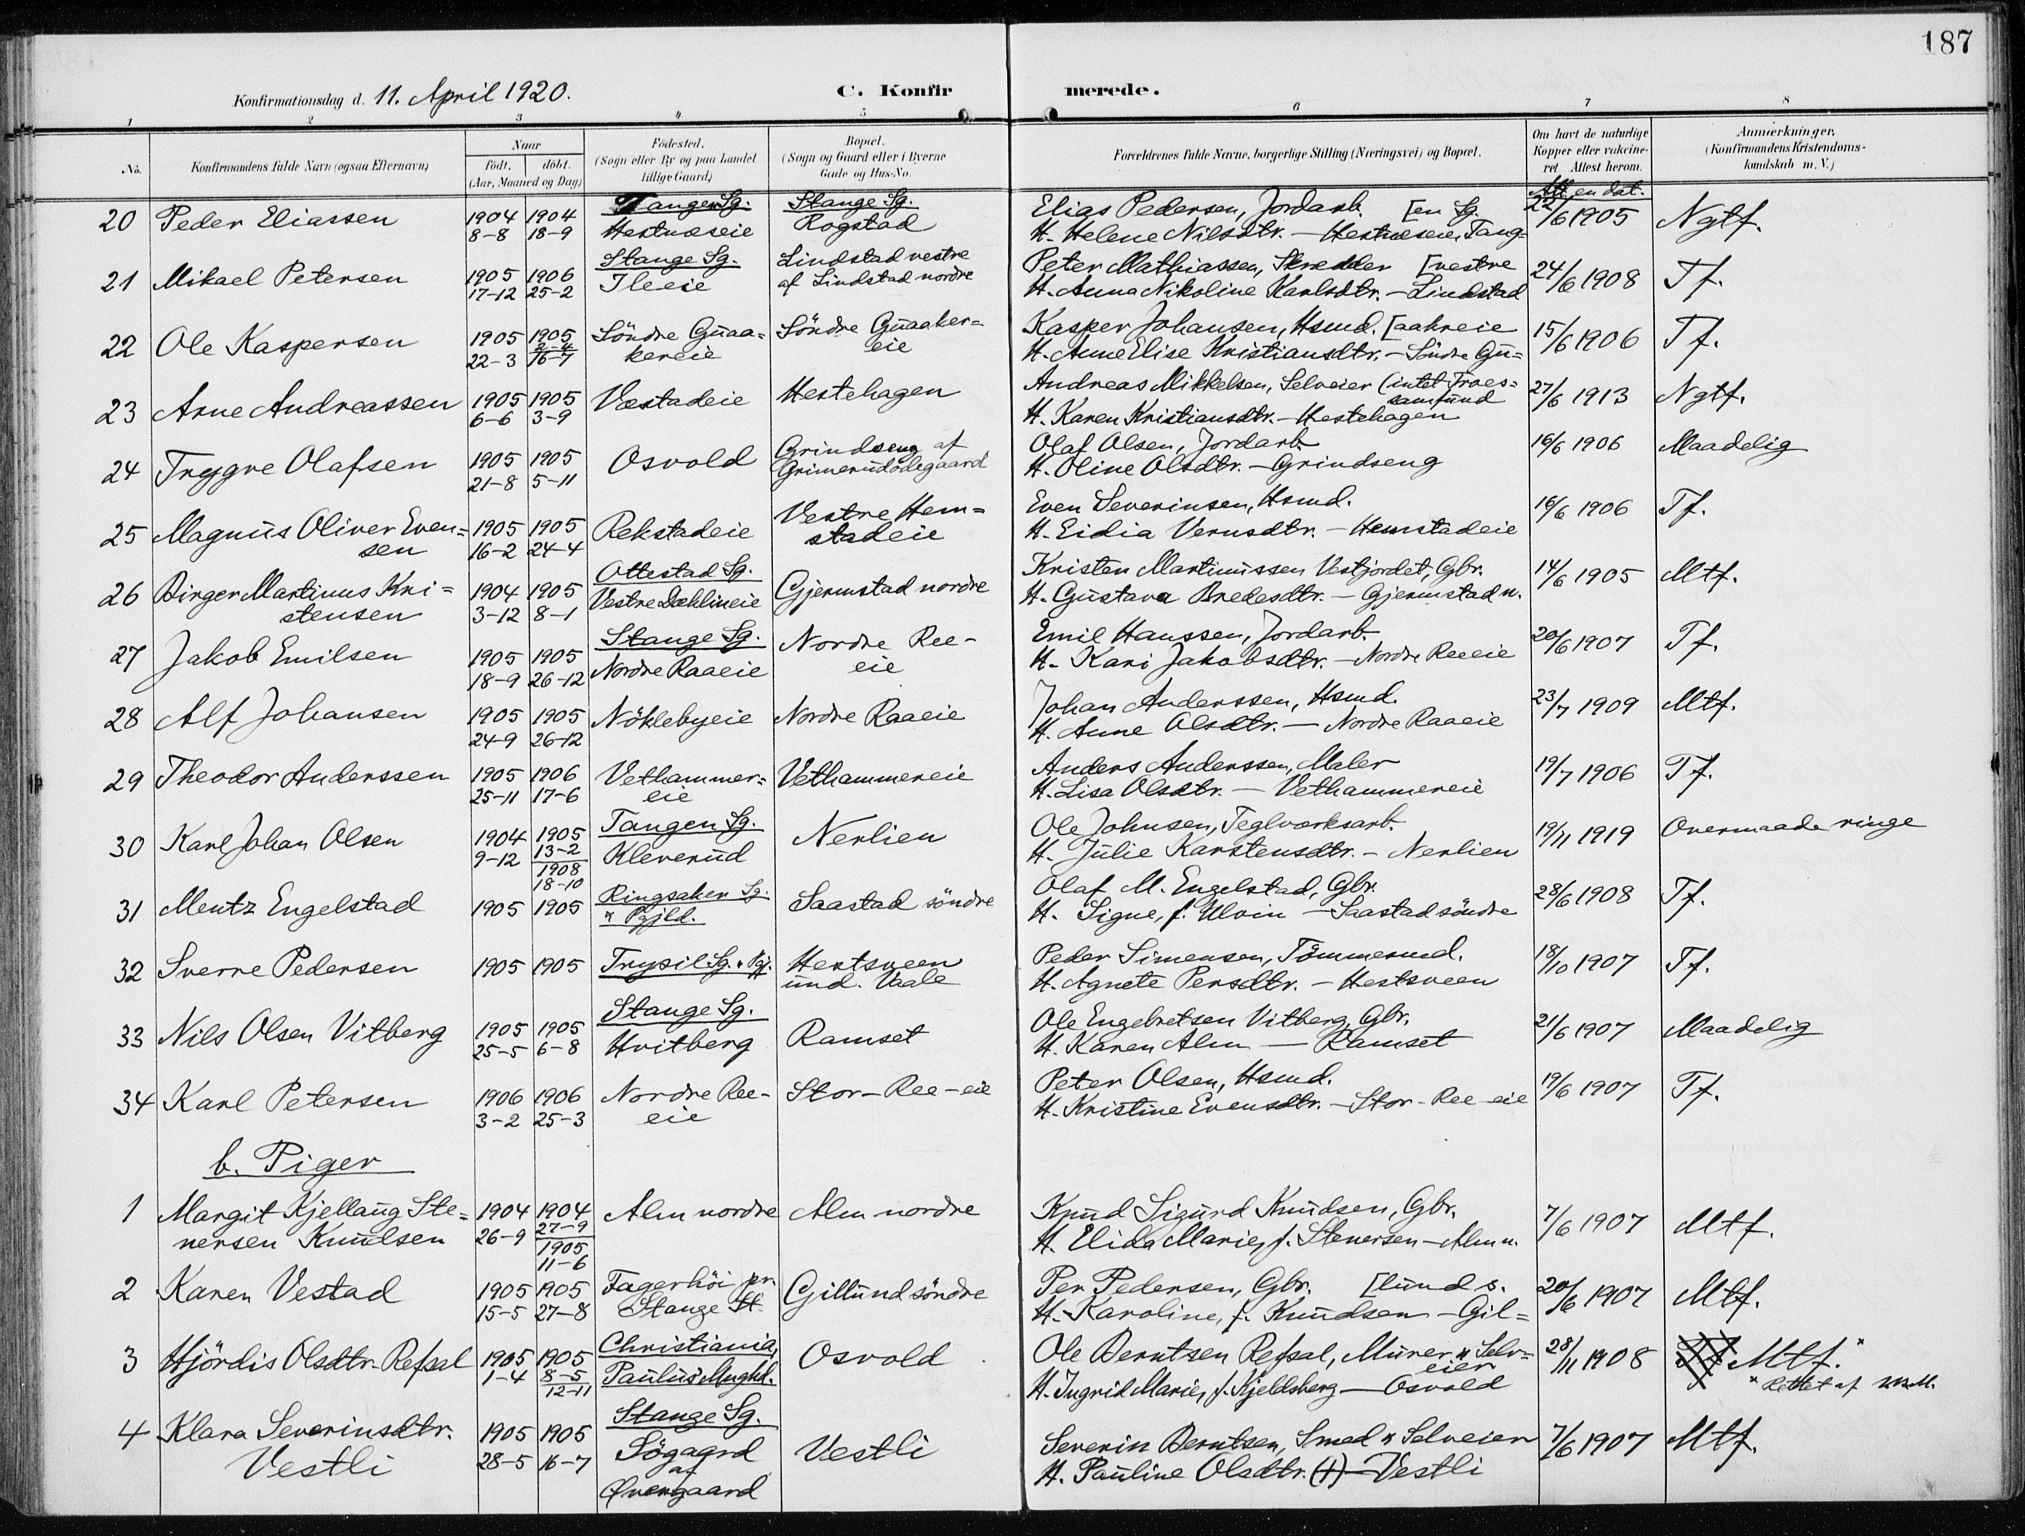 187
Konfirmationsdag d. 11. April 1920. C. Konfirmerede.
1 2 3 4 5 6 7 8
No. Konfirmandens fulde Navn (ogsaa Efternavn) Naar født. døbt. (Aar, Maaned og Dag) Fødested. (Sogn eller By og paa Landet tillige Gaard) Bopæl. (Sogn og Gaard eller i Byerne Gade og Hus-No. Forældrenes fulde Navne, borgerlige Stilling (Næringsvei) og Bopæl. Om havt de naturlige Kopper eller vakcineret. Attest herom. Anmærkninger. (Konfirmandens Kristendomskundskab m. V.)
Tangen Sg. Stange Sg. Elias Pedersen, Jordarb. [en Sg. Att. en dat.
20 Peder Eliassen 1904 8-8 1904 18-9 Hestnæseie Rogstad H. Helene Nilsdtr. - Hestnæseie, Tang- 22/6 1905 Ngtf.
Stange Sg. Lindstad vestre Peter Mathiassen, Skredder [vestre
21 Mikael Petersen 1905 17-12 1906 25-2 Ileeie af Lindstad nordre H. Anna Nikoline Karlsdtr. - Lindstad 24/6 1908 Tf.
22 Ole Kaspersen 1905 22-3 1905 2-4 16-7 Söndre Guaa- Söndre Guaaker- Kasper Johansen, Hsmd. [aakreie 15/6 1906 Tf.
kereie eie H. Anne Elise Kristiansdtr. - Söndre Gu=
23 Arne Andreassen 1905 6-6 1905 3-9 Vestadeie Hestehagen Andreas Mikkelsen, Selveier (intet Troes= samfund 27/6 1913 Ngtf.
H. Karen Kristiansdtr. - Hestehagen
24 Trygve Olafsen 1905 21-8 1905 5-11 Osvold Grindseng af Olaf Olsen, Jordarb. 16/6 1906 Maadelig
Grimerudödegaard H. Oline Olsdtr. - Grindseng
25 Magnus Oliver Even= 1905 16-2 1905 24-4 Rekstadeie Vestre Hem= Even Severinsen, Hsmd. 16/6 1906 Tf.
sen stadeie H. Eidia Vernsdtr. - Hemstadeie
Ottestad Sg.
26 Birger Martinus Kri= 1904 3-12 1905 8-1 Vestre Dæhlineie Gjermstad nordre Kristen Martinussen Vestjordet, Gbr. 14/6 1905 Mtf.
stensen H. Gustava Bredesdtr. - Gjermstad n.
Stange Sg.
27 Jakob Emilsen 1905 18-9 1905 26-12 Nordre Raaeie Nordre Ree- Emil Hanssen, Jordarb. 20/6 1907 Tf.
eie H. Kari Jakobsdtr. - Nordre Reeeie
28 Alf Johansen 1905 24-9 1905 26-12 Nöklebyeie Nordre Raaeie Johan Anderssen, Hsmd. 23/7 1909 Mtf.
H. Anne Olsdtr. - Nordre Raaeie
29 Theodor Anderssen 1905 25-11 1906 17-6 Vethammer= Vethammereie Anders Anderssen, Maler 19/7 1906 Tf.
eie H. Lisa Olsdtr. - Vethammereie
Tangen Sg.
30 Karl Johan Olsen 1904 9-12 1905 13-2 1908 18-10 Kleverud Nerlien Ole Johnsen, Teglværksarb. 19/11 1919 Overmaade ringe
H. Julie Karstensdtr. - Nerlien
31 Mentz Engelstad 1905 1905 Ringsaker Sg. Saastad söndre Olaf M. Engelstad, Gbr. 28/6 1908 Tf.
& Pgjld. H. Signe, f. Ulvin - Saastad söndre
32 Sverre Pedersen 1905 1905 Trysil Sg. & Pgj. Hestsveen Peder Simensen, Tömmermd. 18/10 1907 Tf.
und. Vaale H. Agnete Persdtr. - Hestsveen
Stange Sg.
33 Nils Olsen Vitberg 1905 25-5 1905 6-8 Hvitberg Ramset Ole Engebretsen Vitberg, Gbr. 21/6 1907 Maadelig
H. Karen Alm - Ramset
34 Karl Petersen 1906 3-2 1906 25-3 Nordre Ree- Stor-Ree-eie Peter Olsen, Hsmd. 19/6 1907 Tf.
eie H. Kristine Evensdtr. - Stor-Ree-eie
b. Piger
1 Margit Kjellaug Ste= 1904 26-9 1904 27-9 1905 11-6 Alm nordre Alm nordre Knud Sigurd Knudsen, Gbr. 7/6 1907 Mtf.
nersen Knudsen H. Elida Marie, f. Stenersen - Alm n.
2 Karen Vestad 1905 15-5 1905 27-8 Fagerhöi pr. Gillund söndre Per Pedersen, Gbr. [lund s. 20/6 1907 Mtf.
Stange St. H. Karoline, f. Knudsen - Gil=
Christiania,
3 Hjördis Olsdtr. Refsal 1905 1-4 1905 8-5 12-11 Paulus Mnghd. Osvold Ole Berntsen Refsal, Murer & Selv= eier 28/11 1908 Mtf.*
H. Ingrid Marie, f. Kjeldsberg - Osvold * Rettet af
Stange Sg.
4 Klara Severinsdtr. 1905 28-5 1905 16-7 Sögaard Vestli Severin Berntsen, Smed & Selveier 7/6 1907 Mtf.
Vestli af H. Pauline Olsdtr. (+) - Vestli
Övergaard